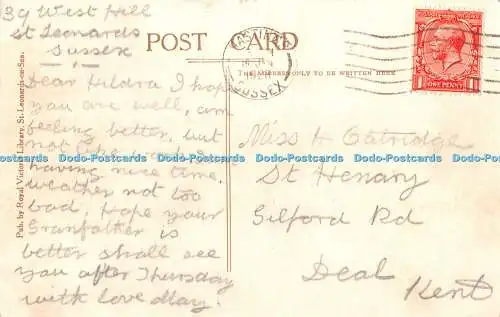 39 West Hill
St Leonards
Sussex
POST CARD
THE ADDRESS ONLY TO BE WRITTEN HERE
HASTINGS
SUSSEX
ONE PENNY
Dear Hildra I hope
you are well, am
feeling better, but
not
having nice time.
weather not too
bad, hope your
Granfather is
better shall see
you after Thursday
with love May.
Miss H Oatridge
St Henary
Gilford Rd
Deal
Kent
Pub. by Royal Victoria Library, St. Leonards-on-Sea.
Dodo-Postcards Dodo-Postcards Dodo-Postcards Dodo-Postcards Dodo-Postcards Dodo-Postcards